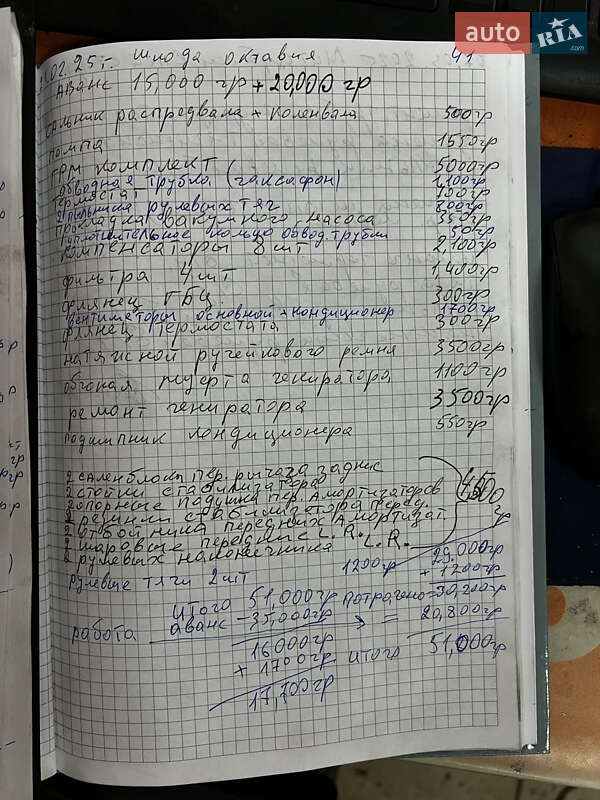 auto RIA.com
.02.25г. шкода октавия 41
Аванс 15,000гр + 20,000гр
сальник распредвала + коленвала 500гр
помпа 1550гр
ГРМ комплект 5000гр
обводная трубка (гаксафон) 1,100гр
Термостат 100гр
2 пыльника рулевых тяг 800гр
прокладка вакумного насоса 350гр
уплотнительное кольцо обвод. трубки 50гр
компенсаторы 8шт 2,100гр
фильтра 4шт 1,400гр
флянец ГБЦ 300гр
вентиляторы основной + кондиционер 1700гр
флянец термостата 300гр
натяжной ручейкового ремня 3500гр
обгоная муфта гениратора 1100гр
ремонт гениратора 3,500гр
подшипник кондиционера 550гр
2 саленблоки пер. рычага задние
2 стойки стабилизатора
2 опорные подушки пер. Амортизаторов
2 резинки стабилизатора перед.
2 отбойника передних Амортизат.
2 шаровые передние L.R.
2 рулевых наконечника L.R.
рулевые тяги 2шт 1200гр 29.000гр
+ 1200гр
Итого 51,000гр потрачено = 30,200гр
работа аванс - 35,000гр = 20,800гр
16000гр итого 51,000гр
+ 1700гр
17,700гр